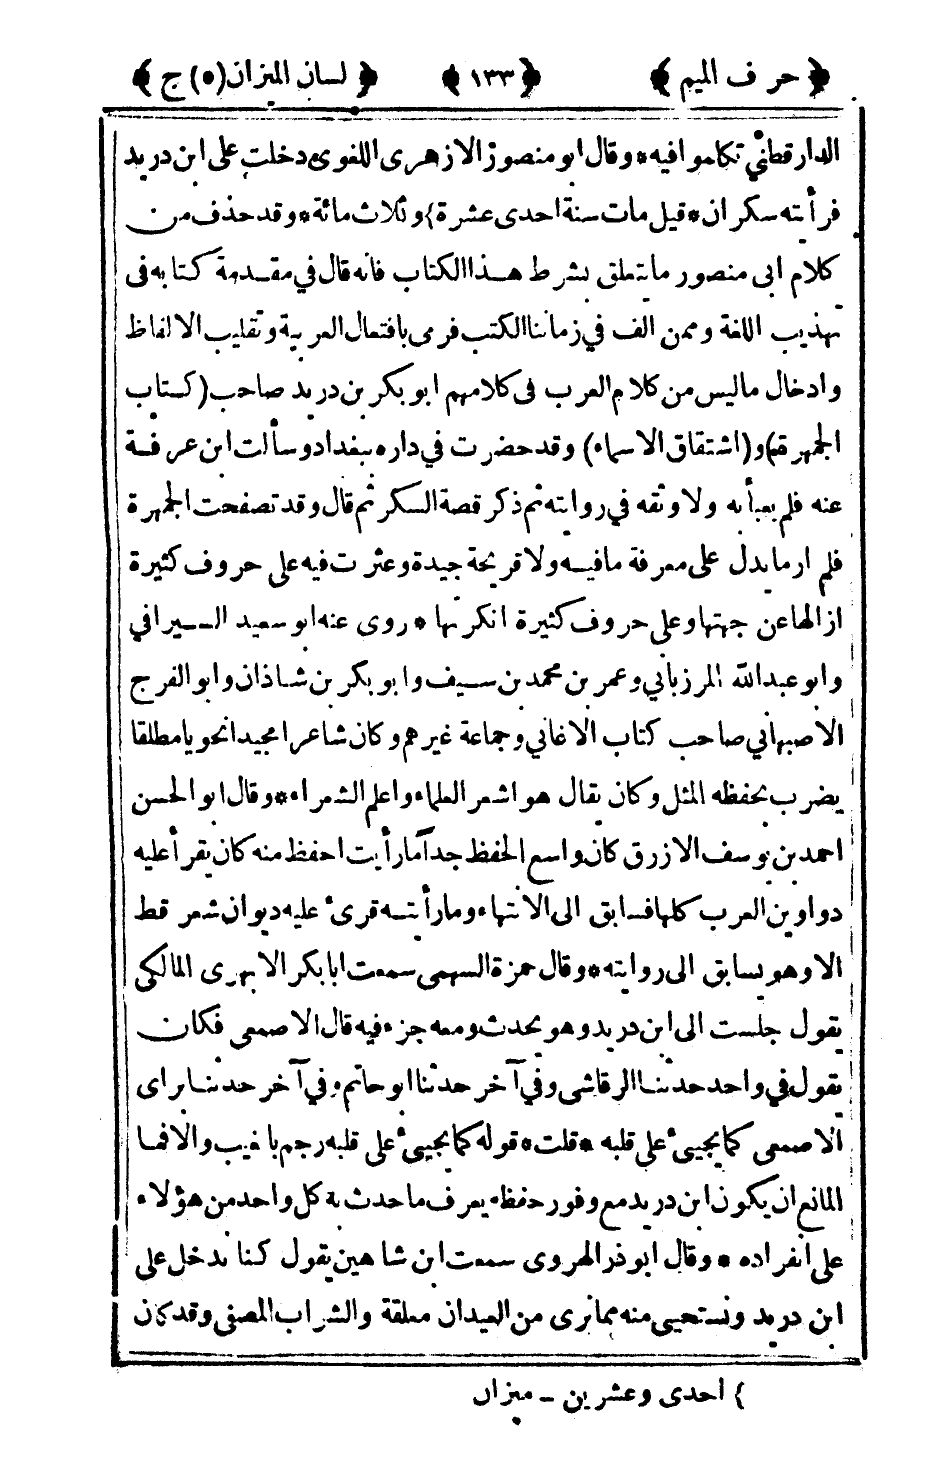 ﴿ حرف الميم ﴾ ﴿ ١٣٣ ﴾ ﴿ لسان الميزان (٥) ج ﴾
الدارقطني تكلموا فيه * وقال ابو منصور الازهرى اللغوى دخلت على ابن دريد
فرأيته سكران * قيل مات سنة احدى عشرة } وثلاث مائة * وقد حذف من
كلام ابى منصور ما يتعلق بشرط هذا الكتاب فانه قال في مقدمة كتابه فى
تهذيب اللغة وممن الف في زماننا الكتب فرمى بافتعال العربية وتقليب الالفاظ
وادخال ما ليس من كلام العرب فى كلامهم ابو بكر بن دريد صاحب (كتاب
الجمهرة) و(اشتقاق الاسماء) وقد حضرت في داره ببغداد وسألت ابن عرفة
عنه فلم يعبأ به ولا وثقه في روايته ثم ذكر قصة السكر ثم قال وقد تصفحت الجمهرة
فلم ار ما يدل على معرفة ما فيه ولا قريحة جيدة وعثرت فيه على حروف كثيرة
ازالها عن جهتها وعلى حروف كثيرة انكرتها * روى عنه ابو سعيد السيرافي
وابو عبدالله المرزباني وعمر بن محمد بن سيف وابو بكر بن شاذان وابو الفرج
الاصبهاني صاحب كتاب الاغاني وجماعة غيرهم وكان شاعرا مجيدا نحويا مطلقا
يضرب بحفظه المثل وكان يقال هو اشعر العلماء واعلم الشعراء * وقال ابو الحسن
احمد بن يوسف الازرق كان واسع الحفظ جدآ ما رأيت احفظ منه كان يقرأ عليه
دواوين العرب كلها فسابق الى الانتهاء وما رأيته قرئ عليه ديوان شعر قط
الا وهو يسابق الى روايته * وقال حمزة السهمى سمعت ابا بكر الابهرى المالكى
يقول جلست الى ابن دريد وهو يحدث ومعه جزء فيه قال الاصمعى فكان
يقول في واحد حدثنا الرقاشى وفي آخر حدثنا ابو حاتم وفي آخر حدثنا براى
الاصمعى كما يجيئ على قلبه * قلت * قوله كما يجيئ على قلبه رجم با غيب والا فما
المانع ان يكون ابن دريد مع وفور حفظه يعرف ما حدث به كل واحد من هؤلاء
على انفراده * وقال ابو ذر الهروى سمعت ابن شاهين يقول كنا ندخل على
ابن دريد ونستحيى منه مما نرى من العيدان معلقة والشراب المصفى وقد كان
} احدى وعشرين ــ ميزان